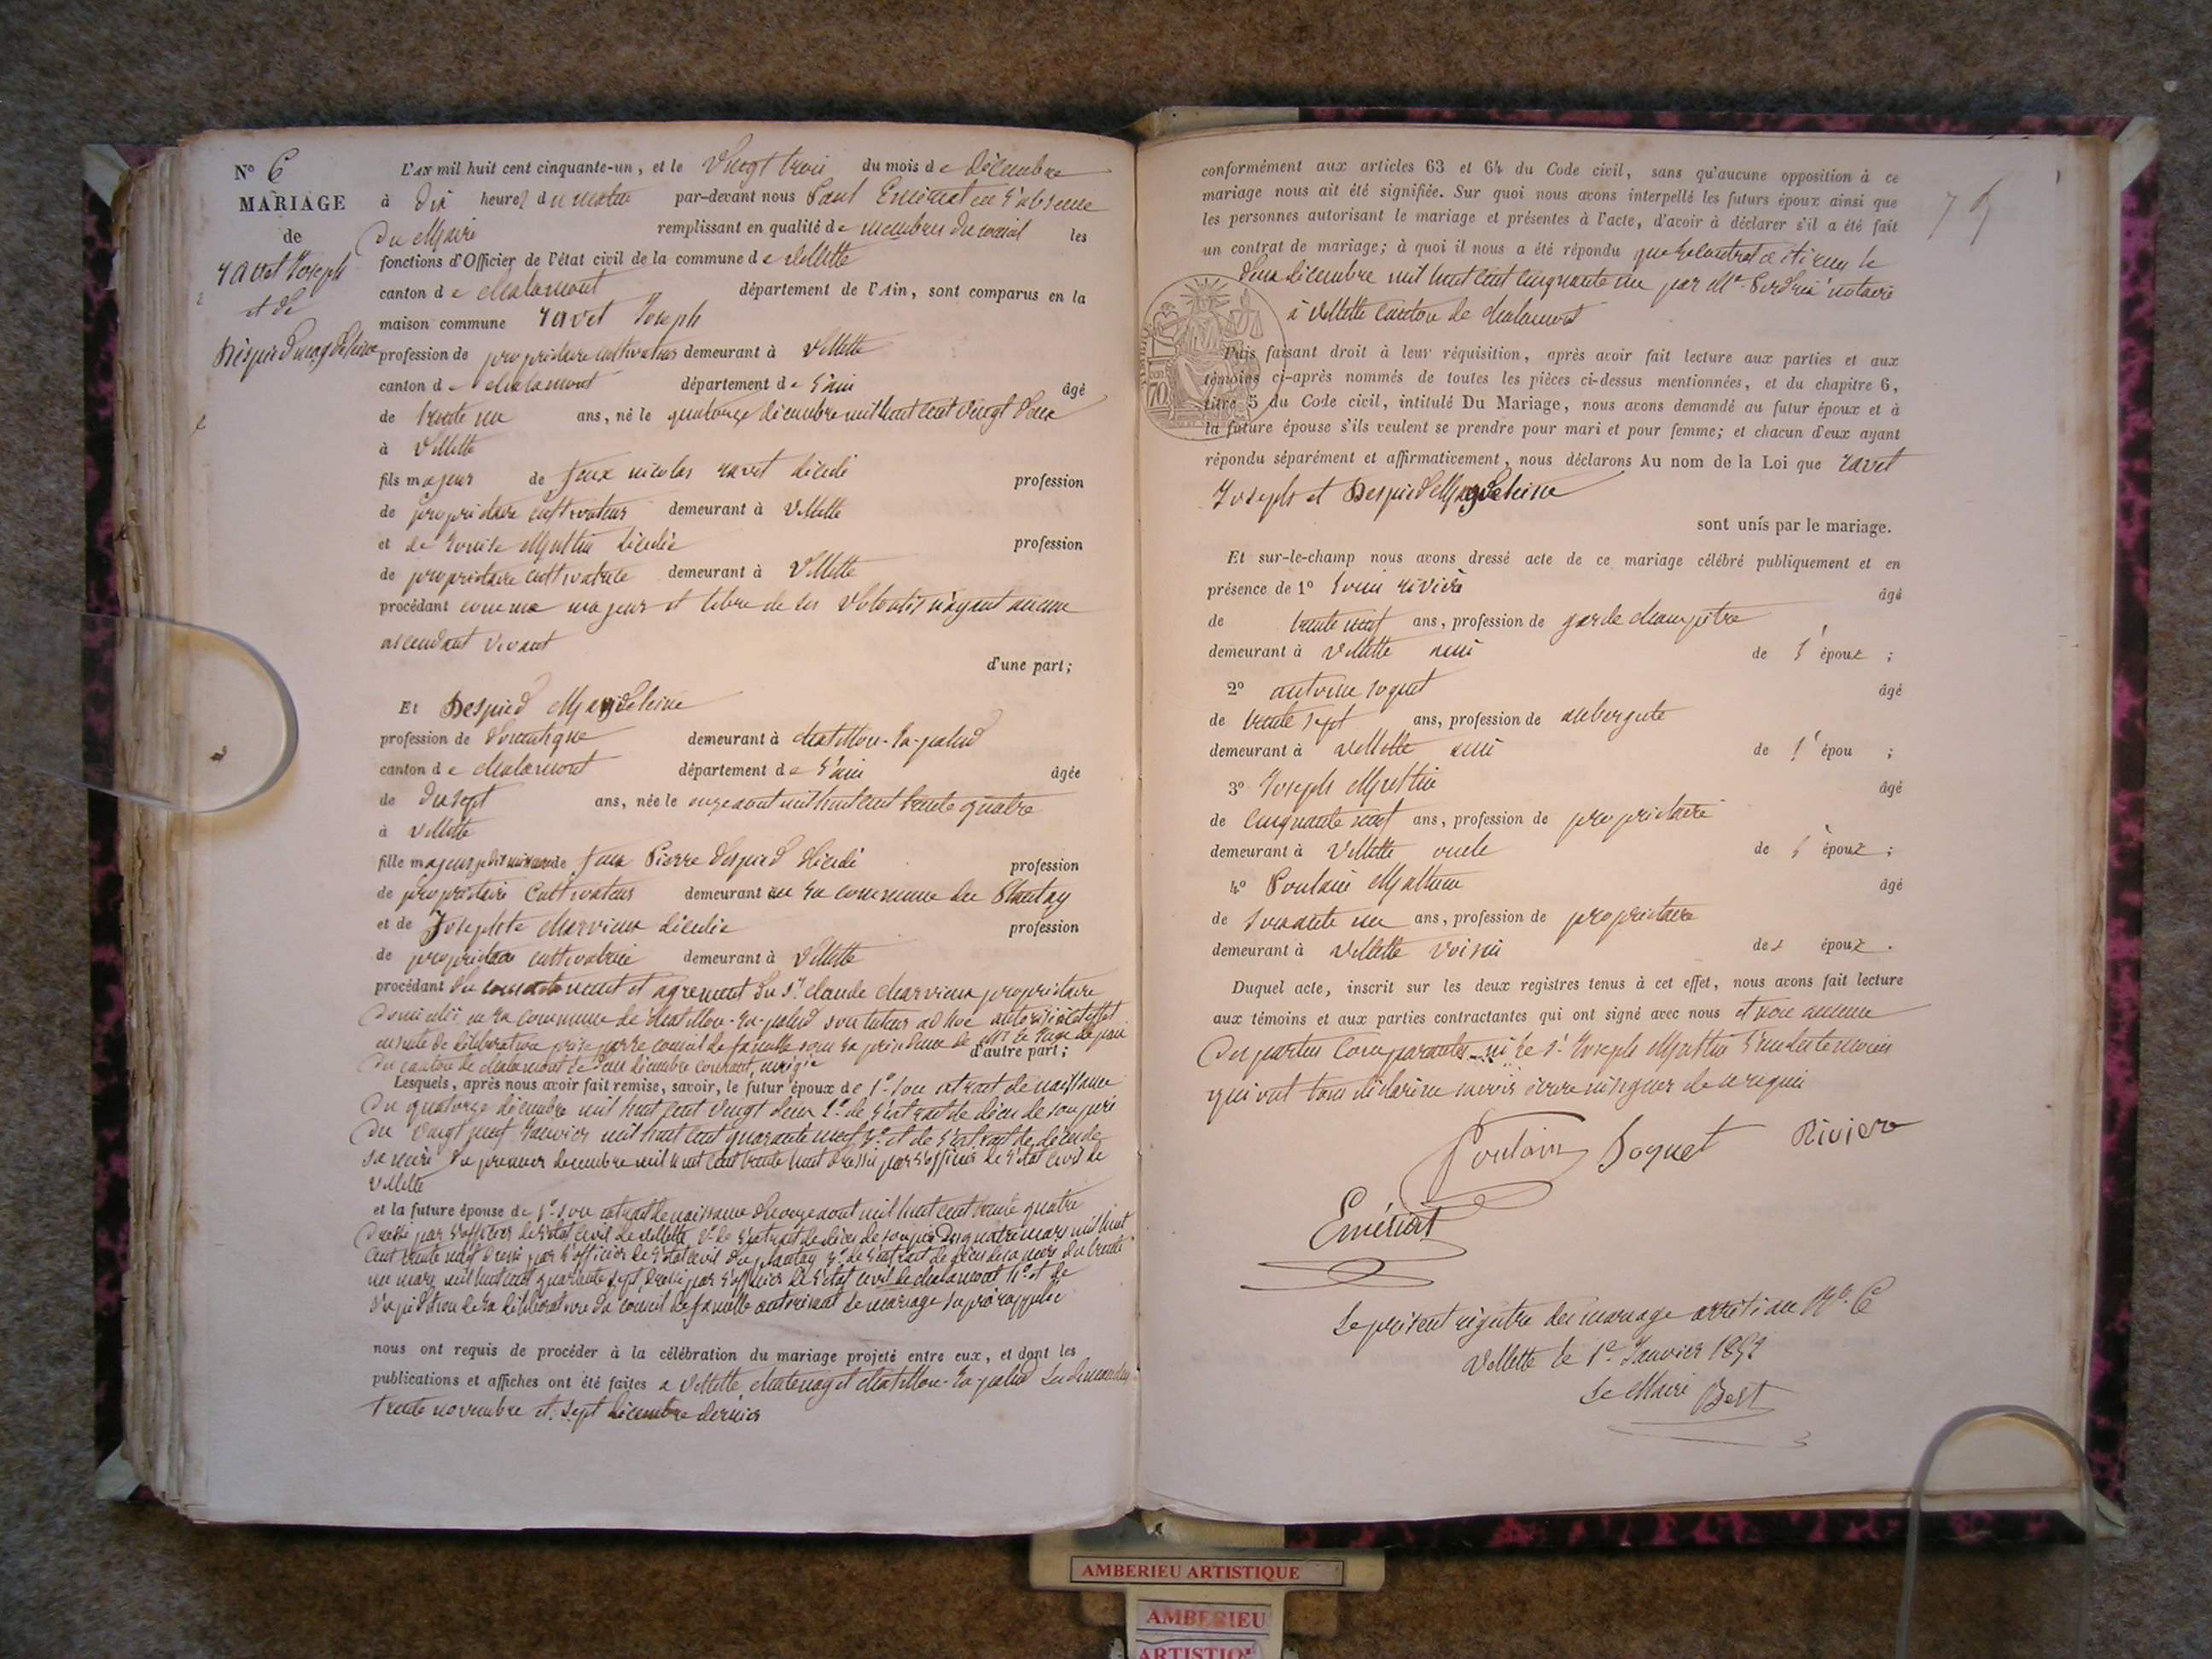 N° 6
MARIAGE
de
ravet Joseph
et de
Despied magdeleine
L'AN mil huit cent cinquante-un, et le Vingt trois du mois de décembre
à dix heures du matin par-devant nous Paul Eménat en l'absence
du Maire remplissant en qualité de membres du conseil les
fonctions d'Officier de l'état civil de la commune de Villette
canton de chalamont département de l'Ain, sont comparus en la
maison commune ravet Joseph
profession de propriétaire cultivateur demeurant à Villette
canton de chalamont département de l'ain âgé
de trente un ans, né le quatorze décembre mil huit cent vingt deux
à Villette
fils majeur de Jean nicolas ravet décédé profession
de propriétaire cultivateur demeurant à Villette
et de Louise décédée profession
de propriétaire cultivatrice demeurant à Villette
procédant comme majeur et libre de ses Volontés n'ayant aucun
ascendant vivant
d'une part;
Et Despied Magdeleine
profession de domestique demeurant à chatillon-la-palud
canton de chalamont département de l'ain âgée
de dix sept ans, née le onze aout mil huit cent trente quatre
à Villette
fille mineure de Jean Pierre despied décédé profession
de propriétaire Cultivateur demeurant en la commune du Plantay
et de Josephte charvieux décédée profession
de propriétaire cultivatrice demeurant à Villette
procédant du consentement et agrement du sr. claude charvieux propriétaire
domicilié en la commune de chatillon-la-palud son tuteur ad hoc autorisé à cet effet
ensuite de délibération prise par le conseil de famille sous la présidence de Mr le Juge de paix
du canton de chalamont le deux décembre courant,
d'autre part;
Lesquels, après nous avoir fait remise, savoir, le futur époux de 1° son extrait de naissance
du quatorze décembre mil huit cent vingt deux 2° de l'extrait de décès de son père
du vingt neuf Janvier mil huit cent quarante neuf 3° et de l'extrait de décès de
sa mère du premier decembre mil huit cent trente huit dressés par l'officier de l'état civil de
Villette
et la future épouse de 1° son extrait de naissance du onze aout mil huit cent trente quatre
dressé par l'officier de l'état civil de Villette, 2° de l'extrait de décès de son père du quatre mars mil huit
cent trente neuf dressé par l'officier de l'état civil du plantay 3° de l'extrait de décès de sa mère du trente
un mars mil huit cent quarante sept dressé par l'officier de l'état civil de chalamont 4° et de
l'expédition de la délibération du conseil de famille autorisant le mariage rappelée
nous ont requis de procéder à la célébration du mariage projeté entre eux, et dont les
publications et affiches ont été faites a Villette, chatenay et chatillon-la-palud les dimanches
trente novembre et sept décembre dernier
conformément aux articles 63 et 64 du Code civil, sans qu'aucune opposition à ce
mariage nous ait été signifiée. Sur quoi nous avons interpellé les futurs époux ainsi que
les personnes autorisant le mariage et présentes à l'acte, d'avoir à déclarer s'il a été fait
un contrat de mariage; à quoi il nous a été répondu que le contrat a été reçu le
deux décembre mil huit cent cinquante un par Me. Perdrix notaire
à Villette Canton de chalamont
Puis faisant droit à leur réquisition, après avoir fait lecture aux parties et aux
témoins ci-après nommés de toutes les pièces ci-dessus mentionnées, et du chapitre 6,
titre 5 du Code civil, intitulé Du Mariage, nous avons demandé au futur époux et à
la future épouse s'ils veulent se prendre pour mari et pour femme; et chacun d'eux ayant
répondu séparément et affirmativement, nous déclarons Au nom de la Loi que ravet
Joseph et Despied Magdeleine
sont unis par le mariage.
Et sur-le-champ nous avons dressé acte de ce mariage célébré publiquement et en
présence de 1° Louis rivière âgé
de trente neuf ans, profession de garde champêtre
demeurant à Villette ami de l'époux ;
2° antoine soquet âgé
de trente sept ans, profession de aubergiste
demeurant à Villette ami de l'épou ;
3° Joseph âgé
de cinquante neuf ans, profession de propriétaire
demeurant à Villette oncle de l'époux ;
4° Poulain Mathieu âgé
de soixante un ans, profession de propriétaire
demeurant à Villette voisin des époux .
Duquel acte, inscrit sur les deux registres tenus à cet effet, nous avons fait lecture
aux témoins et aux parties contractantes qui ont signé avec nous et non aucune
des parties comparantes ni le sr. Joseph l'un des témoins
qui ont tous déclaré ne savoir écrire ni signer de ce requis
Poulain Soquet Rivier
Eménat
Le présent registre des mariage arrêté au N°. 6
Villette le 1er. Janvier 1852
Le Maire Bert
75
AMBERIEU ARTISTIQUE
AMBERIEU
ARTISTIQ